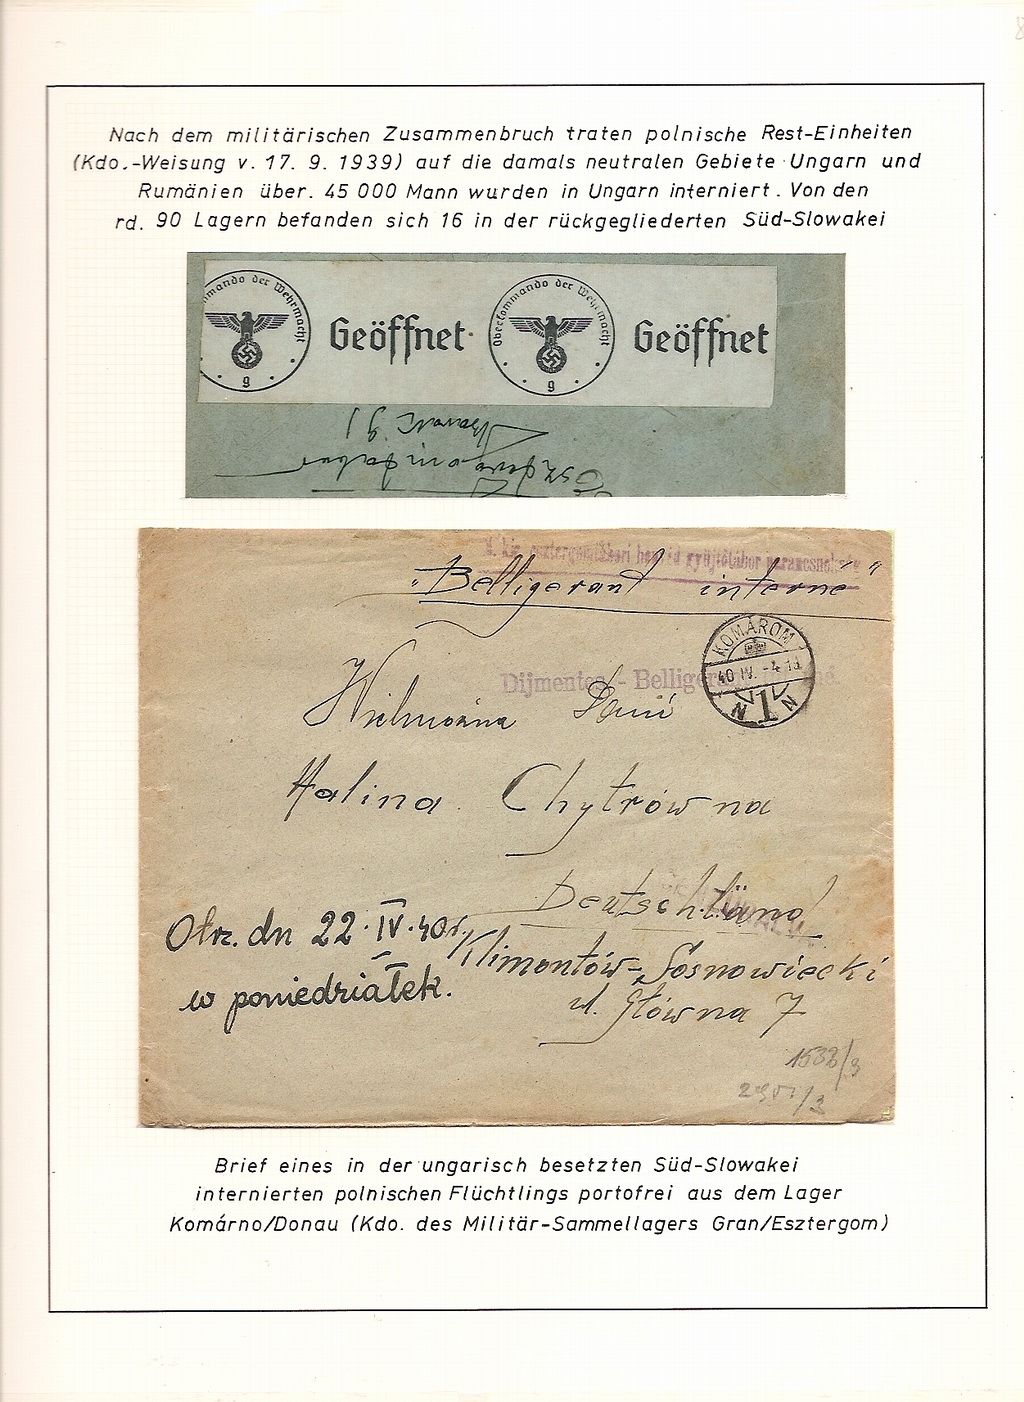 Nach dem militärischen Zusammenbruch traten polnische Rest-Einheiten
(Kdo.-Weisung v. 17. 9. 1939) auf die damals neutralen Gebiete Ungarn und
Rumänien über. 45 000 Mann wurden in Ungarn interniert. Von den
rd. 90 Lagern befanden sich 16 in der rückgegliederten Süd-Slowakei
mmando der Wehrmacht
g
Geöffnet
Oberkommando der Wehrmacht
g
Geöffnet
gyüjtőtábor parancsnokság
"Belligerant interné"
KOMÁROM
40 IV. -4 18
Dijmentes - Bellige
Wielmożna Pani
Halina Chytrówna
Deutschland
Otrz. dn 22·IV·40r.
Klimontów-Sosnowiecki
w poniedziałek.
ul. Główna 7
Brief eines in der ungarisch besetzten Süd-Slowakei
internierten polnischen Flüchtlings portofrei aus dem Lager
Komárno/Donau (Kdo. des Militär-Sammellagers Gran/Esztergom)